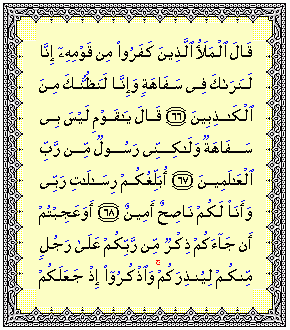 قَالَ ٱلْمَلَأُ ٱلَّذِينَ كَفَرُوا۟ مِن قَوْمِهِۦٓ إِنَّا
لَنَرَىٰكَ فِى سَفَاهَةٍ وَإِنَّا لَنَظُنُّكَ مِنَ
ٱلْكَـٰذِبِينَ ٦٦ قَالَ يَـٰقَوْمِ لَيْسَ بِى
سَفَاهَةٌ وَلَـٰكِنِّى رَسُولٌ مِّن رَّبِّ
ٱلْعَـٰلَمِينَ ٦٧ أُبَلِّغُكُمْ رِسَـٰلَـٰتِ رَبِّى
وَأَنَا۠ لَكُمْ نَاصِحٌ أَمِينٌ ٦٨ أَوَعَجِبْتُمْ
أَن جَآءَكُمْ ذِكْرٌ مِّن رَّبِّكُمْ عَلَىٰ رَجُلٍ
مِّنكُمْ لِيُنذِرَكُمْ ۚ وَٱذْكُرُوٓا۟ إِذْ جَعَلَكُمْ